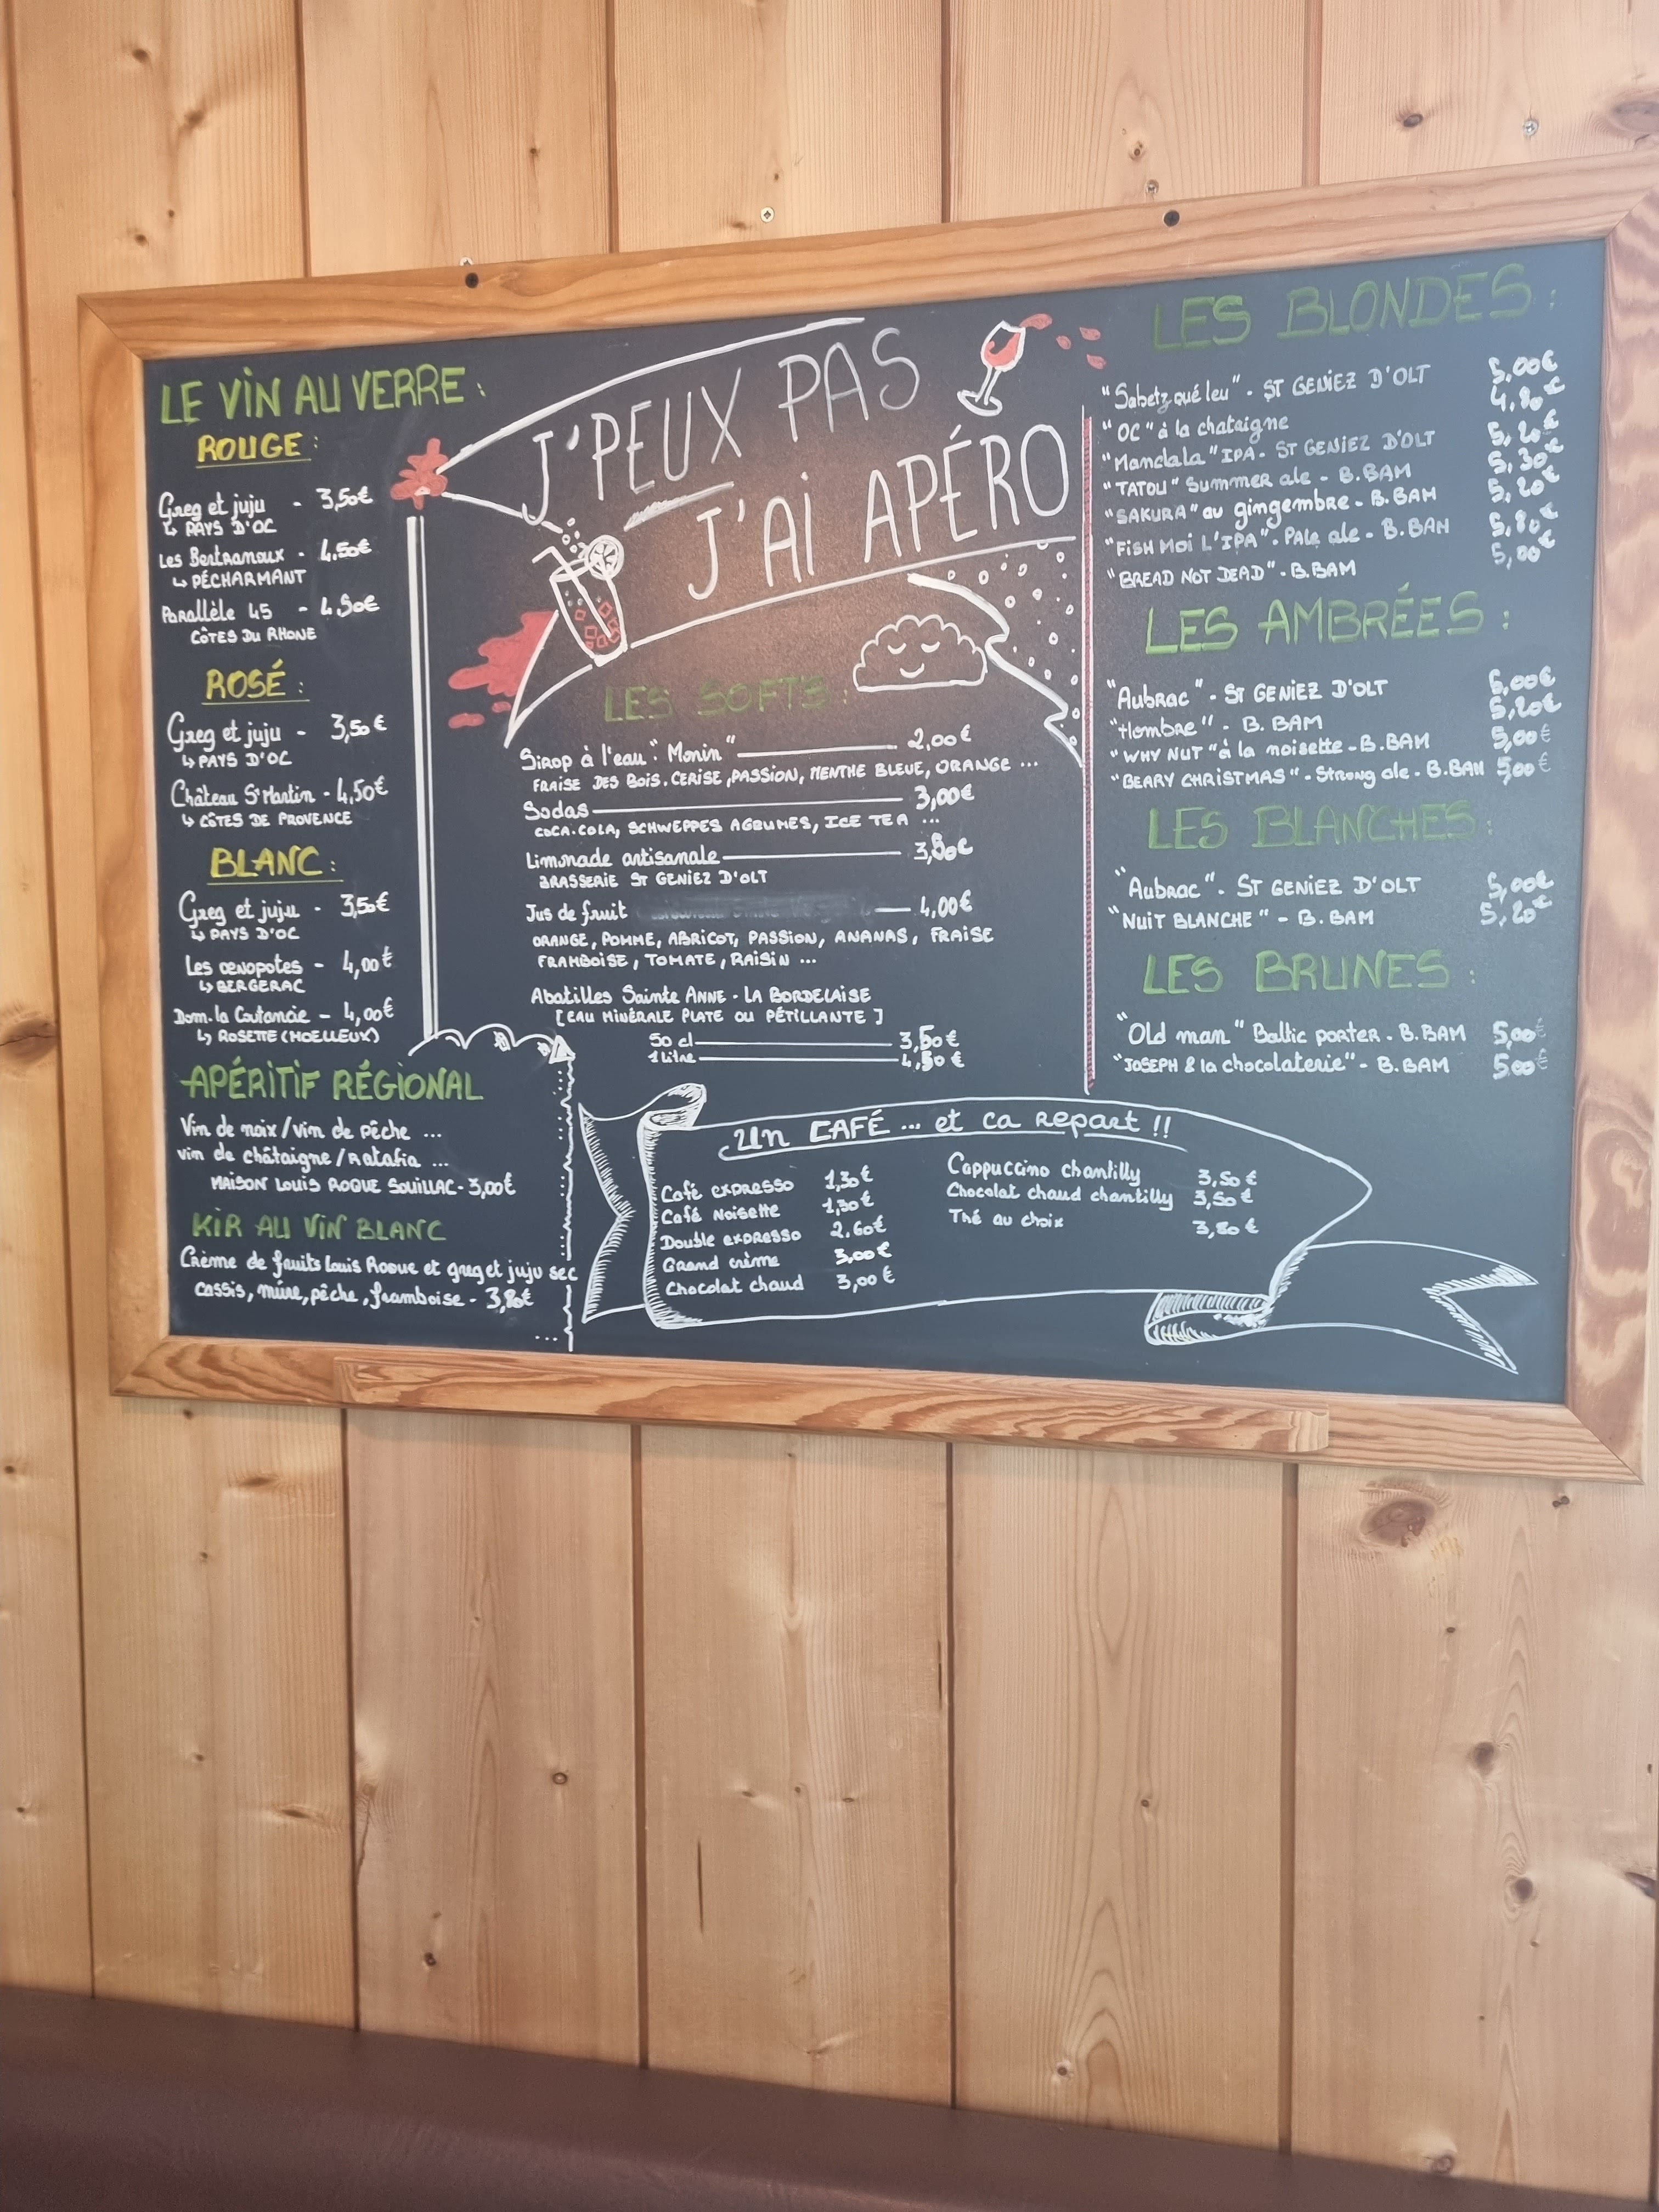 LE VIN AU VERRE :
ROUGE :
Greg et juju - 3,50€
↳ PAYS D'OC
Les Bertranoux - 4,50€
↳ PÉCHARMANT
Parallèle 45 - 4,50€
CÔTES DU RHONE
ROSÉ :
Greg et juju - 3,50€
↳ PAYS D'OC
Château St Martin - 4,50€
↳ CÔTES DE PROVENCE
BLANC :
Greg et juju - 3,50€
↳ PAYS D'OC
Les œnopotes - 4,00€
↳ BERGERAC
Dom. la Coutancie - 4,00€
↳ ROSETTE (MOELLEUX)
APÉRITIF RÉGIONAL
Vin de noix / vin de pêche ...
vin de châtaigne / Ratafia ...
MAISON LOUIS ROQUE SOUILLAC - 3,00€
KIR AU VIN BLANC
Crème de fruits Louis Roque et greg et juju sec
cassis, mûre, pêche, framboise - 3,80€
J'PEUX PAS
J'AI APÉRO
LES SOFTS :
Sirop à l'eau "Monin" 2,00€
FRAISE DES BOIS. CERISE, PASSION, MENTHE BLEUE, ORANGE ...
Sodas 3,00€
COCA-COLA, SCHWEPPES AGRUMES, ICE TEA ...
Limonade artisanale 3,80€
BRASSERIE ST GENIEZ D'OLT
Jus de fruit 4,00€
ORANGE, POMME, ABRICOT, PASSION, ANANAS, FRAISE
FRAMBOISE, TOMATE, RAISIN ...
Abatilles Sainte ANNE - LA BORDELAISE
[EAU MINÉRALE PLATE OU PÉTILLANTE]
50 cl 3,50€
1 Litre 4,50€
Un CAFÉ ... et ca repart !!
Café expresso 1,30€
Café Noisette 1,30€
Double expresso 2,60€
Grand crème 3,00€
Chocolat chaud 3,00€
Cappuccino chantilly 3,50€
Chocolat chaud chantilly 3,50€
Thé au choix 3,80€
LES BLONDES :
"Sabetz qué leu" - ST GENIEZ D'OLT 5,00€
"OC" à la chataigne 4,80€
"Mandala" IPA - ST GENIEZ D'OLT 5,20€
"TATOU" Summer ale - B.BAM 5,30€
"SAKURA" au gingembre - B.BAM 5,20€
"FISH MOI L'IPA" - Pale ale - B.BAM 5,80€
"BREAD NOT DEAD" - B.BAM 5,00€
LES AMBRÉES :
"Aubrac" - ST GENIEZ D'OLT 5,00€
"Hombre" - B.BAM 5,20€
"WHY NUT" à la noisette - B.BAM 5,00€
"BEARY CHRISTMAS" - Strong ale - B.BAM 5,00€
LES BLANCHES :
"Aubrac" - ST GENIEZ D'OLT 5,00€
"NUIT BLANCHE" - B.BAM 5,20€
LES BRUNES :
"Old man" Baltic porter - B.BAM 5,00€
"JOSEPH & la chocolaterie" - B.BAM 5,00€